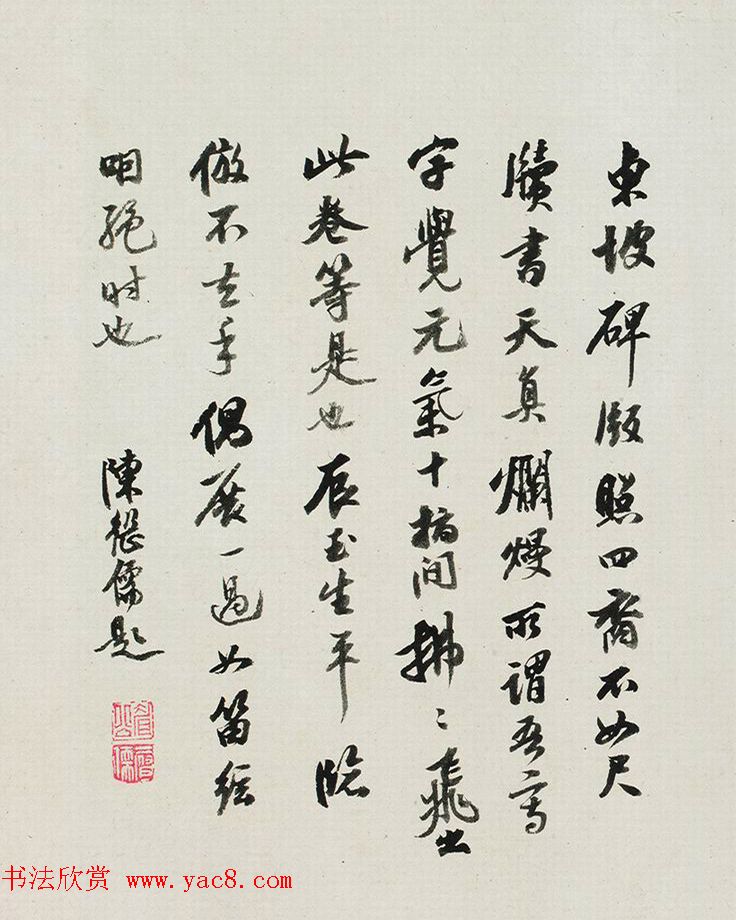 東坡碑版照四裔不如尺
牘書天真爛熳所謂吾寫
字覺元氣十指間拂〻飛出
此卷等是也辰玉生平臨
倣不去手偶展一過如笛絃
咽絕時也
陳繼儒題
书法欣赏 www.yac8.com